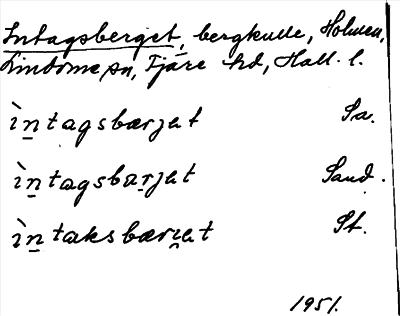 Intagsberget, bergkulle, Holmen,
Lindome sn, Fjäre hd, Hall. l.
ìn̲tagsbærjet Sa.
ìn̲tagsbærjet Sand.
ìn̲taksbærjet St.
1951.